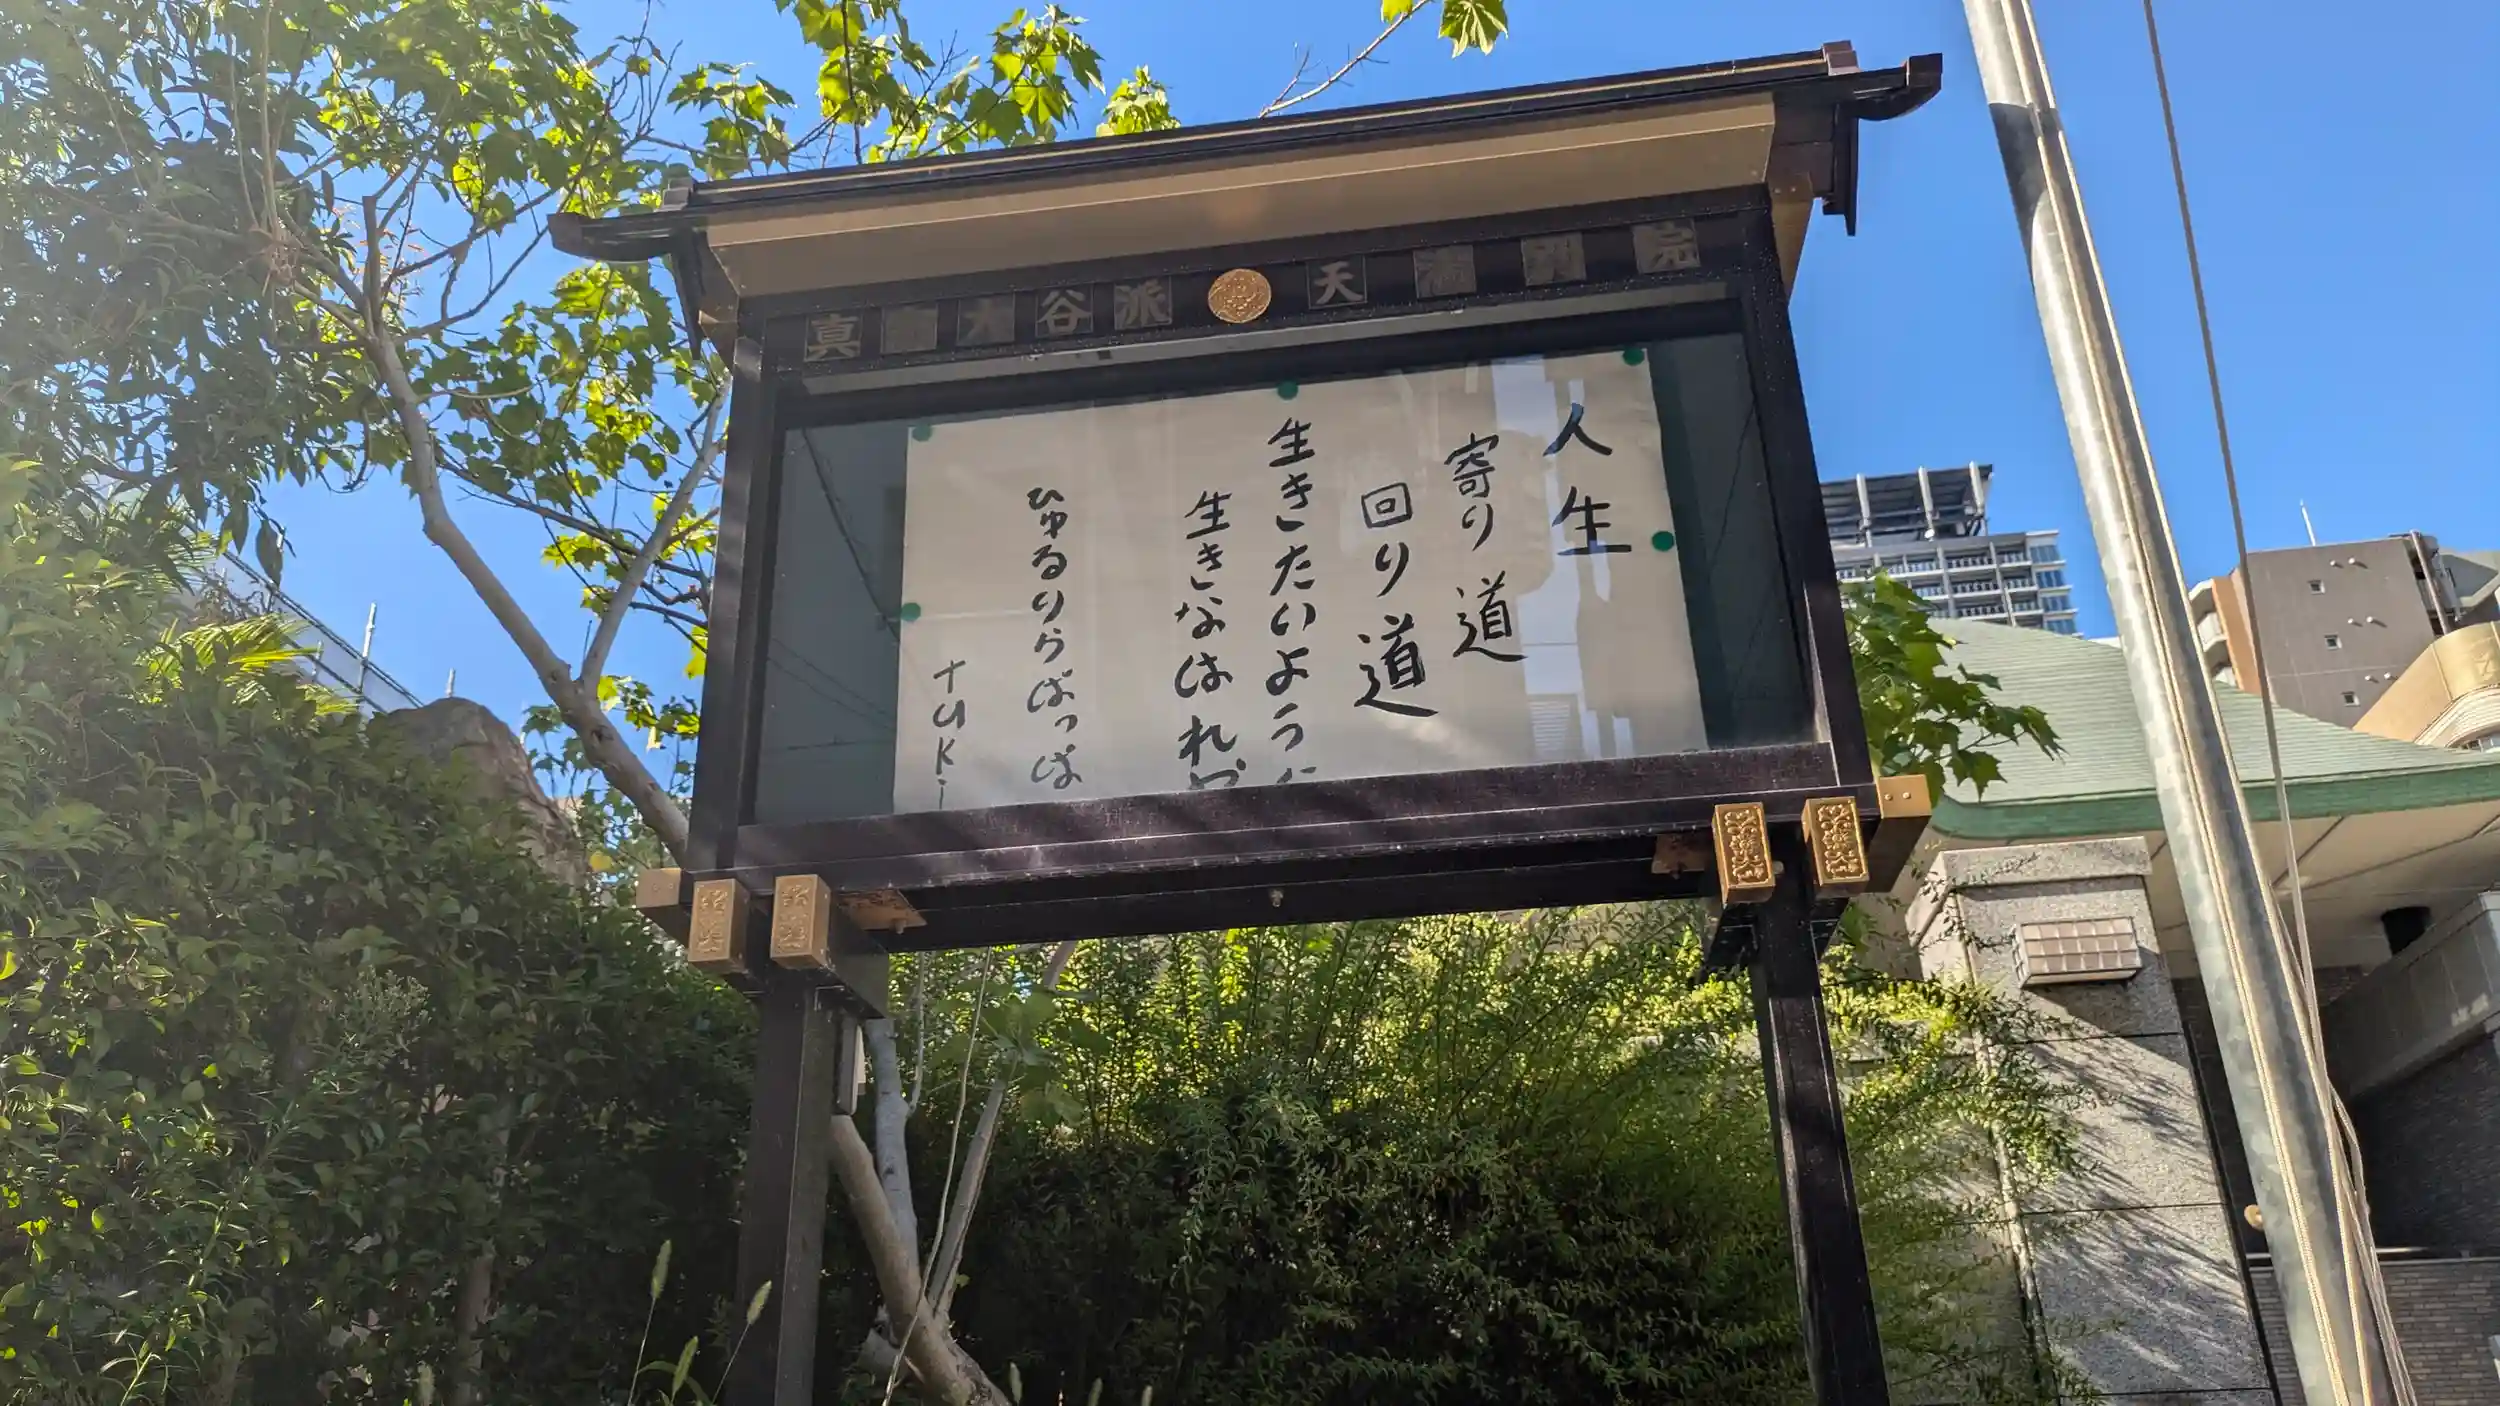 真宗大谷派 天満別院
人生
寄り道
回り道
生きたいように
生きなはれや
ひゅるりらぱっぱ
tuki